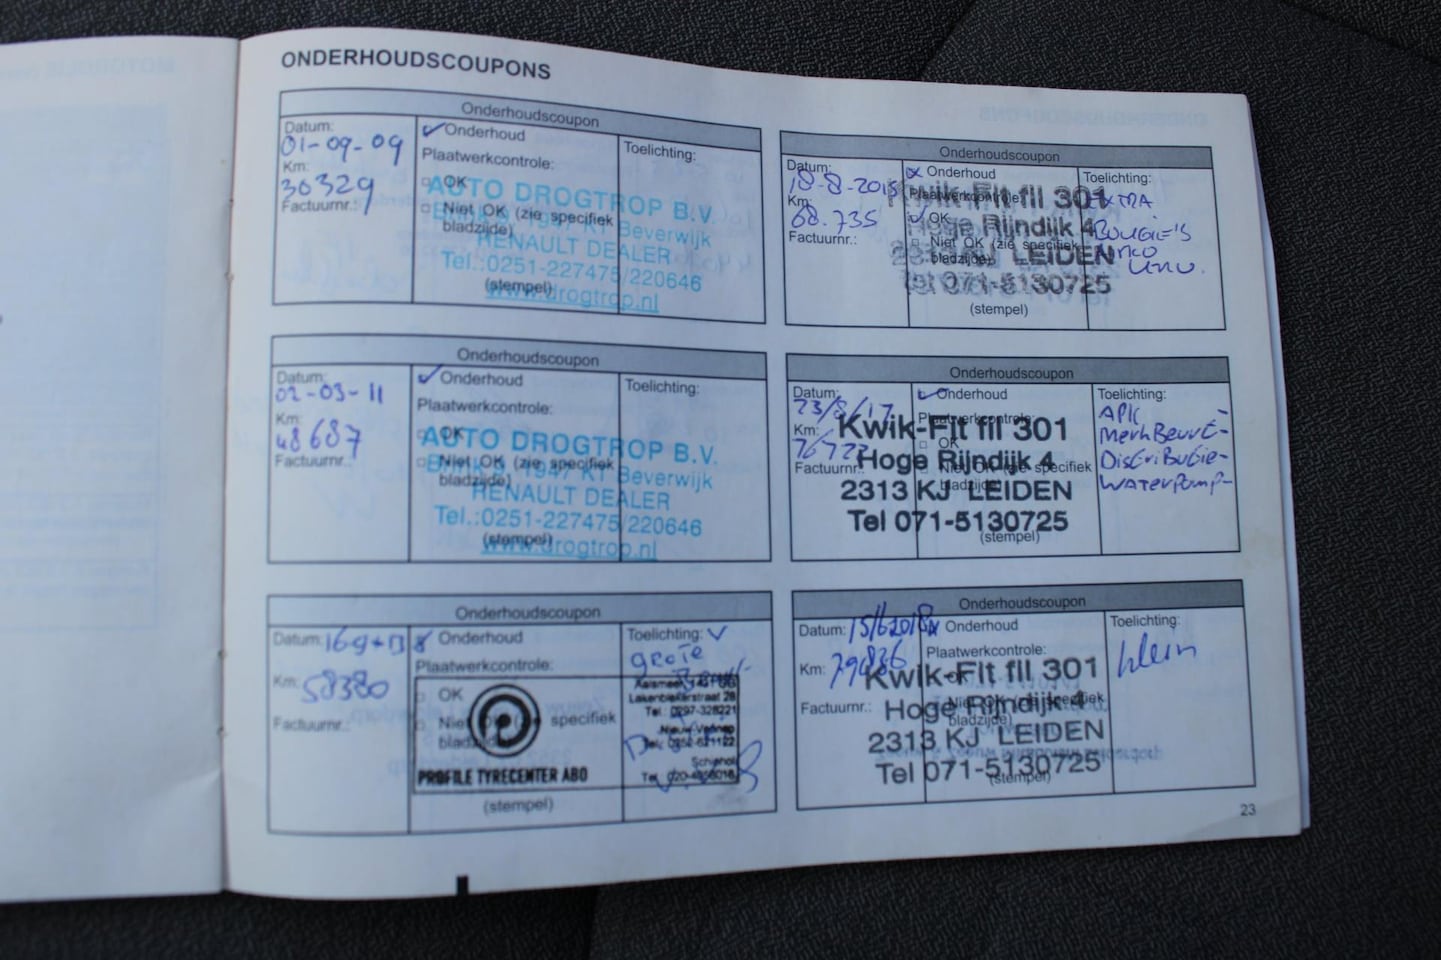 ONDERHOUDSCOUPONS
Onderhoudscoupon
Datum:
01-09-09
Km:
30329
Factuurnr.:
✓ Onderhoud
Plaatwerkcontrole:
□ OK
□ Niet OK (zie specifiek
bladzijde)
AUTO DROGTROP B.V.
1947 KT Beverwijk
RENAULT DEALER
Tel.:0251-227475/220646
www.drogtrop.nl
(stempel)
Toelichting:
Onderhoudscoupon
Datum:
02-03-11
Km:
48687
Factuurnr.:
✓ Onderhoud
Plaatwerkcontrole:
□ OK
□ Niet OK (zie specifiek
bladzijde)
AUTO DROGTROP B.V.
1947 KT Beverwijk
RENAULT DEALER
Tel.:0251-227475/220646
www.drogtrop.nl
(stempel)
Toelichting:
Onderhoudscoupon
Datum:
Km: 58380
Factuurnr.:
Onderhoud
Plaatwerkcontrole:
□ OK
□ Niet OK (zie specifiek
bladzijde)
PROFILE TYRECENTER ABO
(stempel)
Toelichting: ✓
grote
Lakenblekerstraat 28
Tel. 0297-328221
Nieuw-Vennep
Schiphol
Onderhoudscoupon
Datum:
18-8-2015
Km:
68.735
Factuurnr.:
x Onderhoud
Plaatwerkcontrole:
OK
□ Niet OK (zie specifiek
bladzijde)
Kwik-Fit fil 301
Hoge Rijndijk 4
LEIDEN
tel 071-5130725
(stempel)
Toelichting:
EXTRA
BOUGIE'S
Onderhoudscoupon
Datum:
23/8/17
Km:
76723
Factuurnr.:
✓ Onderhoud
Plaatwerkcontrole:
□ OK
□ Niet OK (zie specifiek
bladzijde)
Kwik-Fit fil 301
Hoge Rijndijk 4
2313 KJ LEIDEN
Tel 071-5130725
(stempel)
Toelichting:
APK
MerkBeurt-
DistriButie-
WATERPOMP-
Onderhoudscoupon
Datum: 15/6 2018
Km: 79836
Factuurnr.:
x Onderhoud
Plaatwerkcontrole:
Niet OK (zie specifiek
bladzijde)
Kwik-Fit fil 301
Hoge Rijndijk 4
2313 KJ LEIDEN
Tel 071-5130725
(stempel)
Toelichting:
klein
23